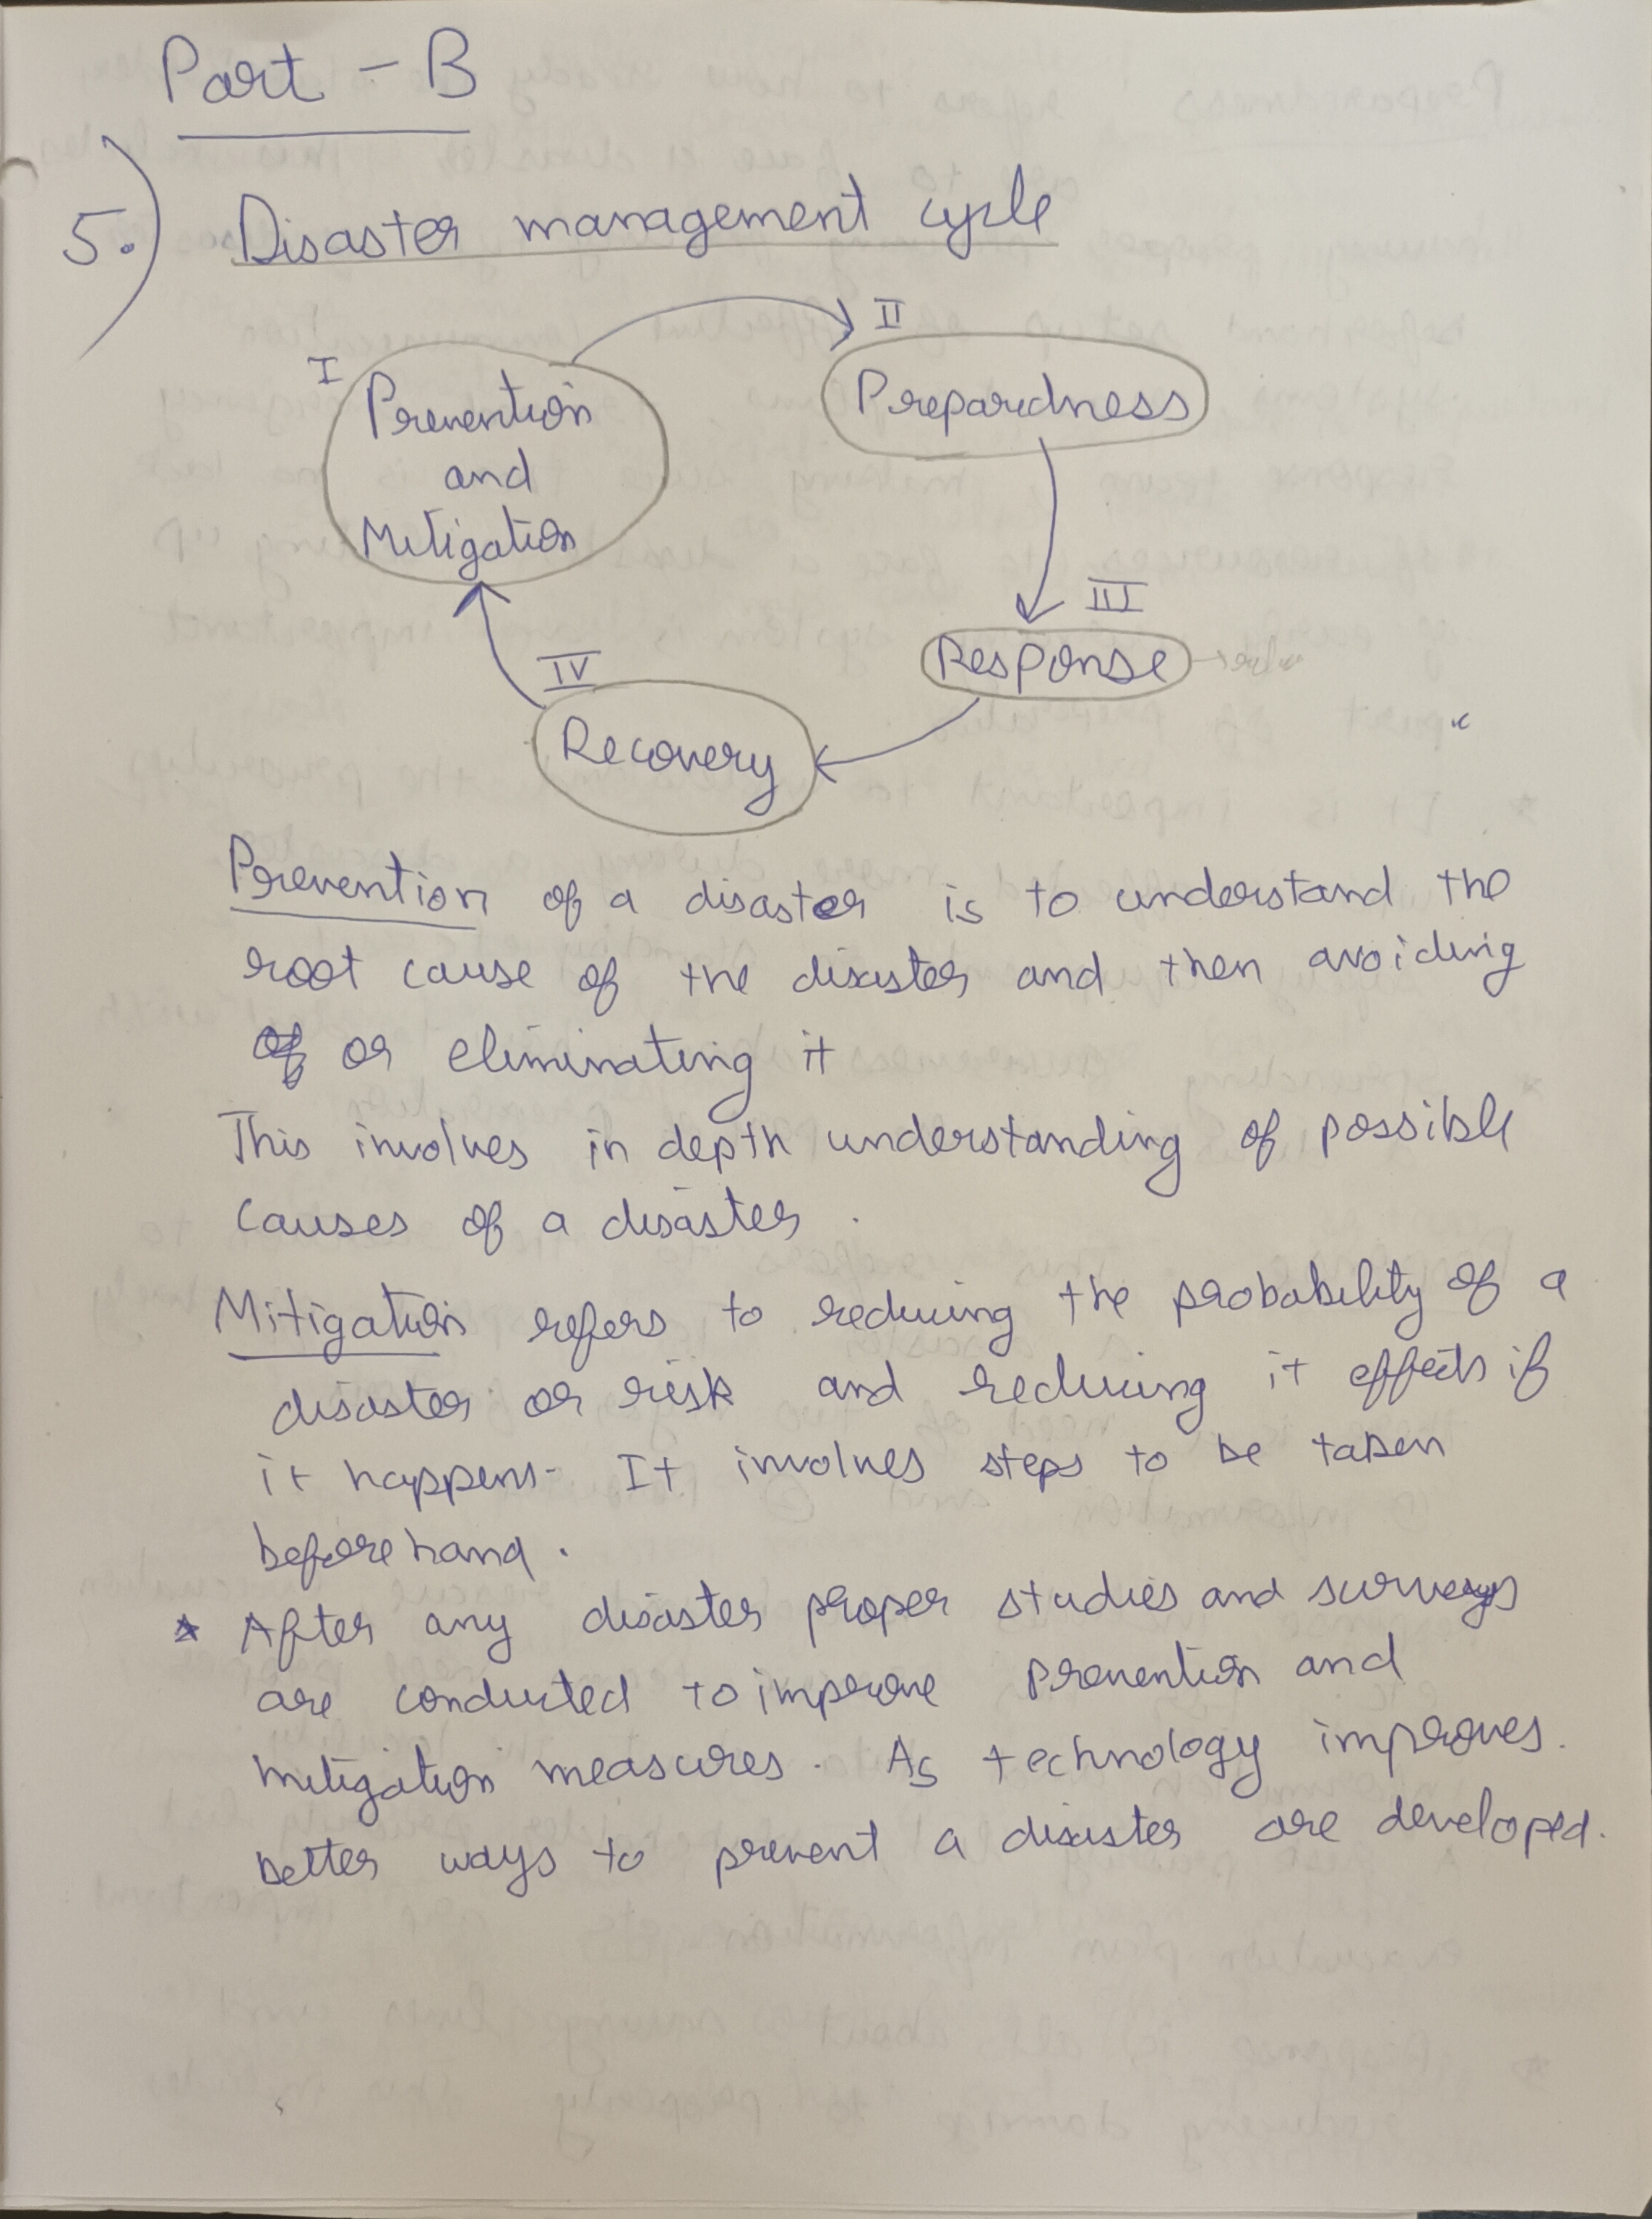 Part - B
5.) Disaster management cycle
I
Prevention
and
Mitigation
II
Preparedness
III
Response
IV
Recovery
Prevention of a disaster is to understand the
root cause of the disaster and then avoiding
or eliminating it
This involves in depth understanding of possible
causes of a disaster.
Mitigation refers to reducing the probability of a
disaster or risk and reducing it effects if
it happens. It involves steps to be taken
beforehand.
* After any disaster proper studies and surveys
are conducted to improve prevention and
mitigation measures. As technology improves.
better ways to prevent a disaster are developed.